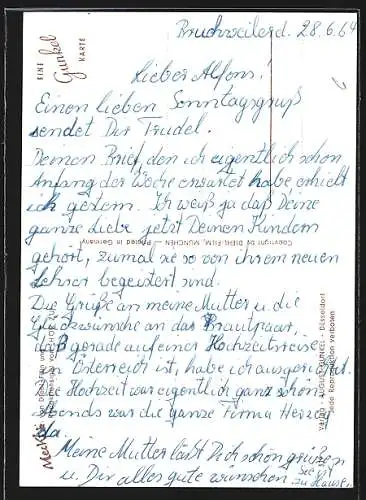 Bruchweiler d. 28.6.64
Lieber Alfons!
Einen lieben Sonntagsgruß
sendet Dir Trudel.
Deinen Brief, den ich eigentlich schon
Anfang der Woche erwartet habe, erhielt
ich gestern. Ich weiß ja daß Deine
ganze Liebe jetzt Deinen Kindern
gehört, zumal sie so von ihrem neuen
Lehrer begeistert sind.
Die Grüße an meine Mutter u. die
Glückwünsche an das Brautpaar,
daß gerade auf einer Hochzeitsreise
in Österreich ist, habe ich ausgerichtet.
Die Hochzeit war eigentlich ganz schön
abends war die ganze Firma Herzog
da.
Meine Mutter läßt Dich schön grüßen
u. Dir alles gute wünschen
zu Hause
EINE
Gunkel
KARTE
Copyright by DIEHL-FILM, MÜNCHEN - Printed in Germany
Mecki
Verlag AUGUST GUNKEL - Düsseldorf
Jede Reproduktion verboten